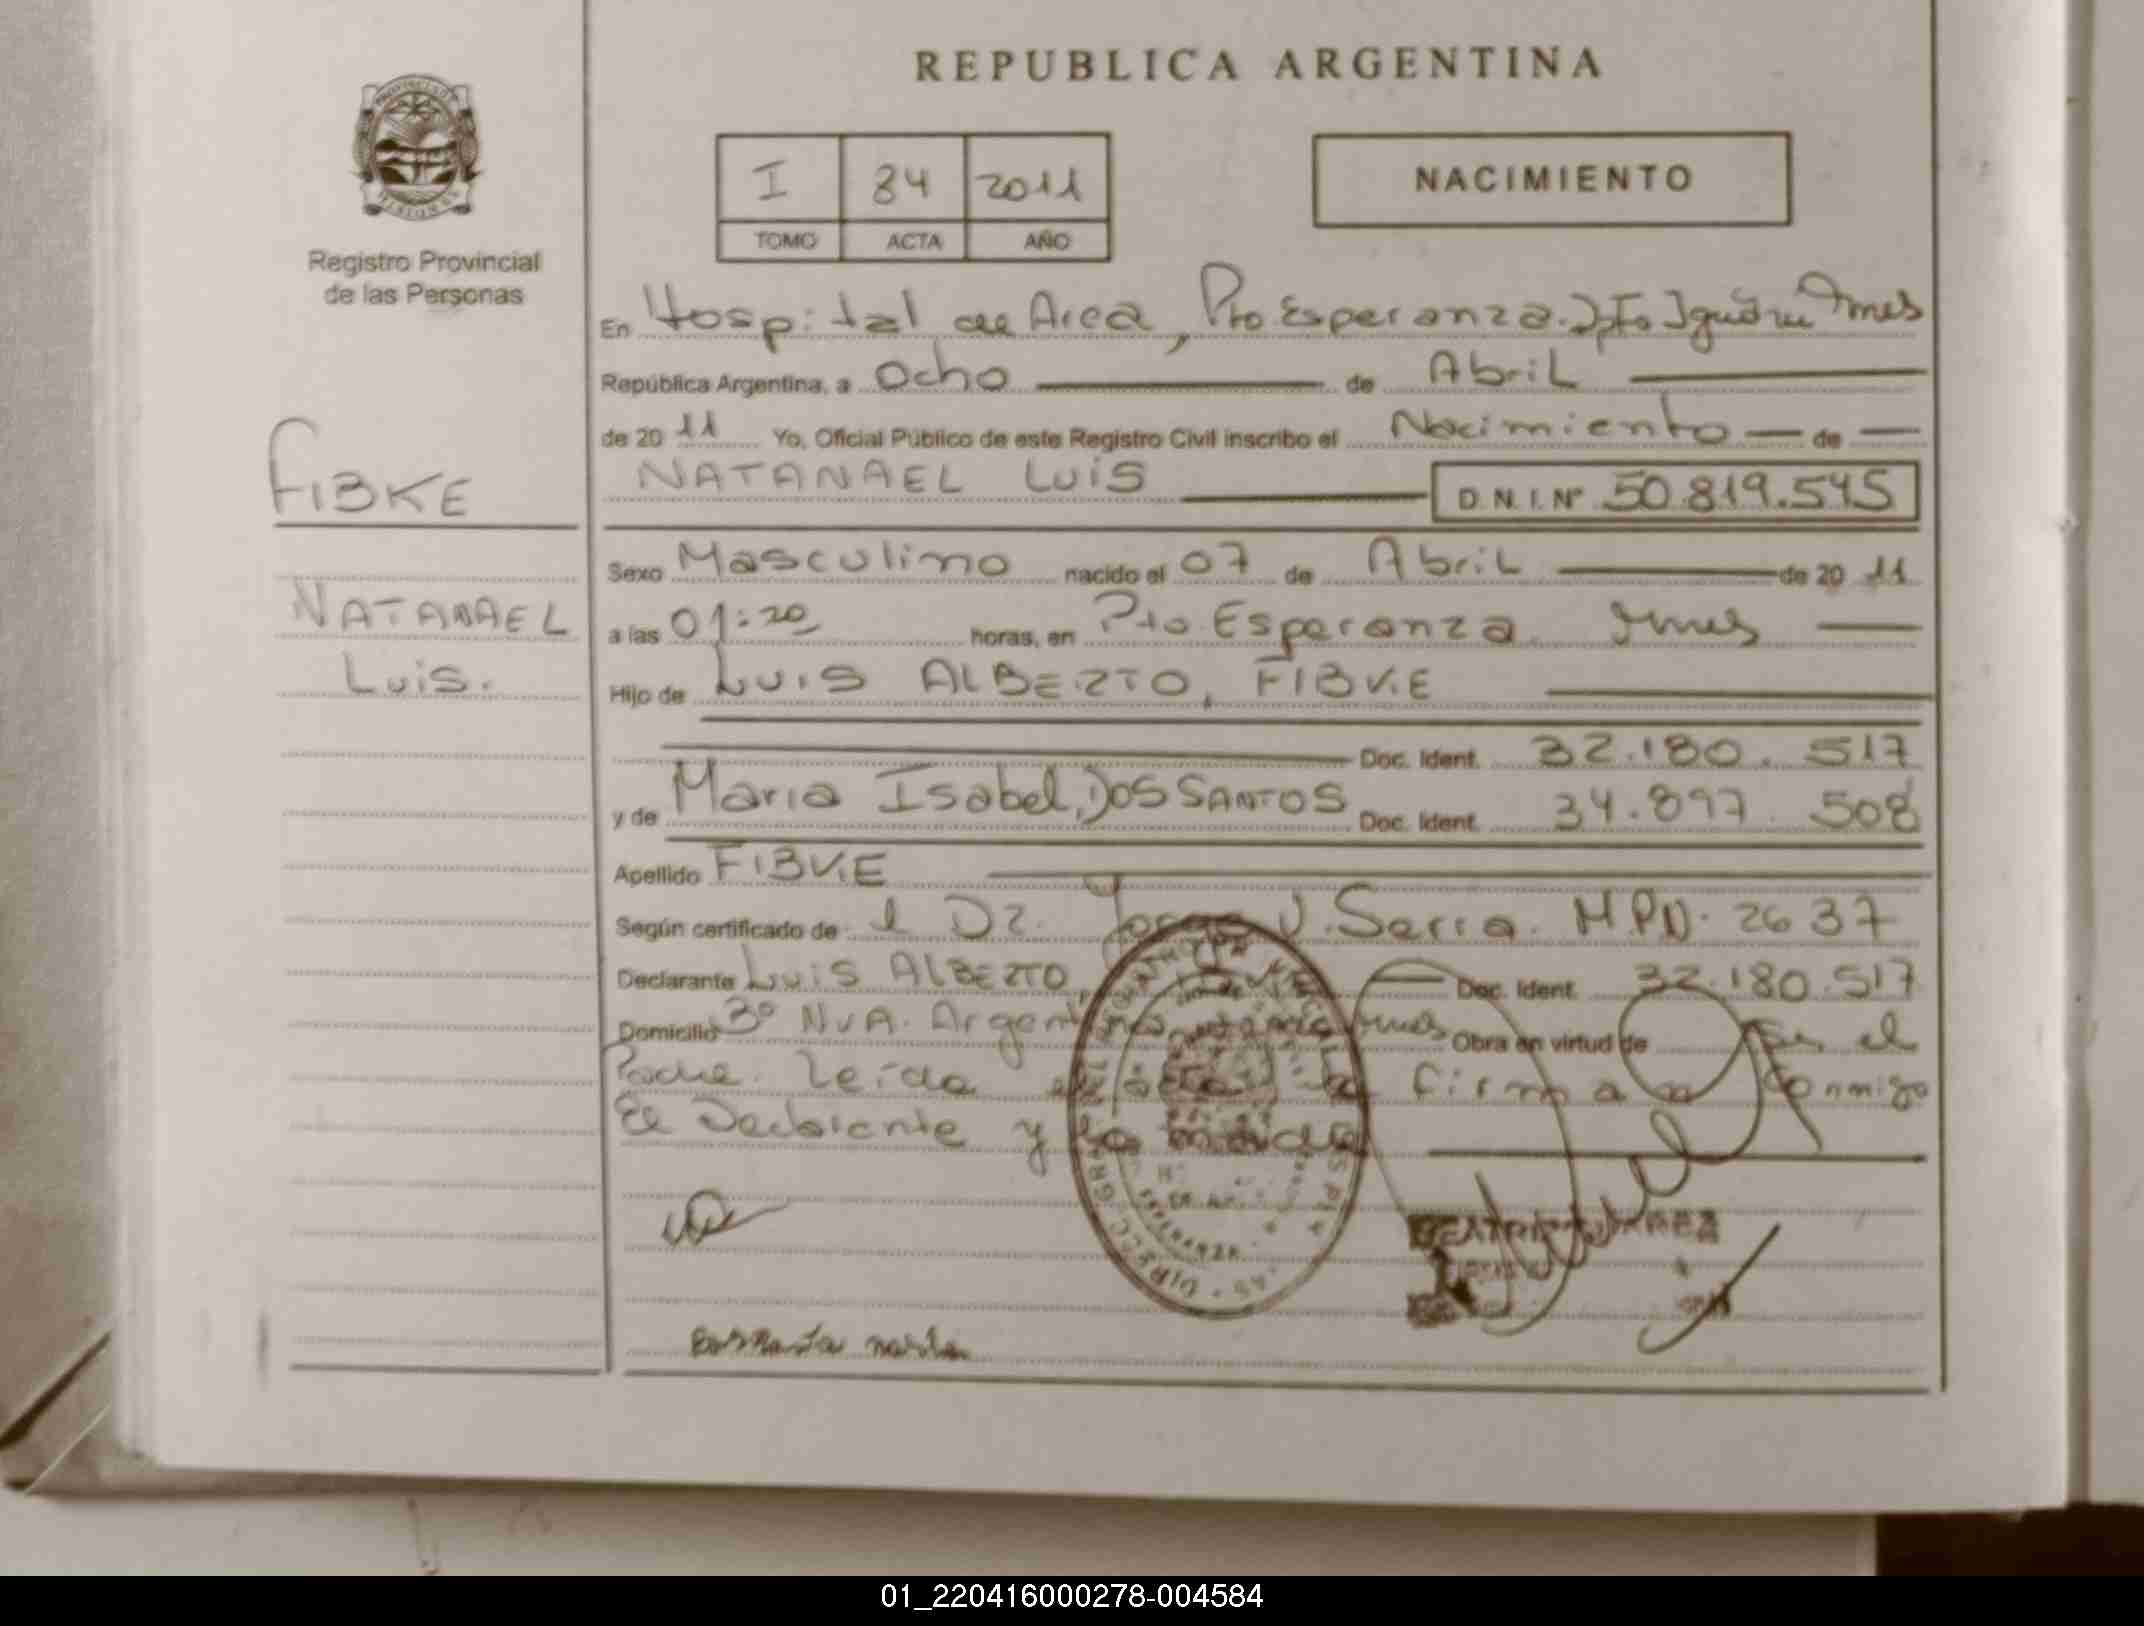 REPUBLICA ARGENTINA
I 84 2011
TOMO ACTA AÑO
NACIMIENTO
PROVINCIA DE
MISIONES
Registro Provincial
de las Personas
FIBKE
NATANAEL
Luis.
En Hospital de Area, Pto Esperanza. Dpto Iguazu Mnes
República Argentina, a Ocho de Abril
de 20 11 Yo, Oficial Público de este Registro Civil inscribo el Nacimiento de
NATANAEL LUIS D.N.I.Nº 50.819.545
Sexo Masculino nacido el 07 de Abril de 20 11
a las 01:20 horas, en Pto. Esperanza Mnes
Hijo de LUIS ALBERTO, FIBKE
Doc. Ident. 32.180.517
y de Maria Isabel, DOS SANTOS Doc. Ident. 34.897 508
Apellido FIBKE
Según certificado de l Dr. Jorge V. Serra. MPN. 2637
Declarante LUIS ALBERTO, Doc. Ident. 32.180.517
Domicilio 3º NvA. Argentina Mnes Obra en virtud de Ser el
Padre. Leida el acta la firma conmigo
El Declarante y la madre
01_220416000278-004584